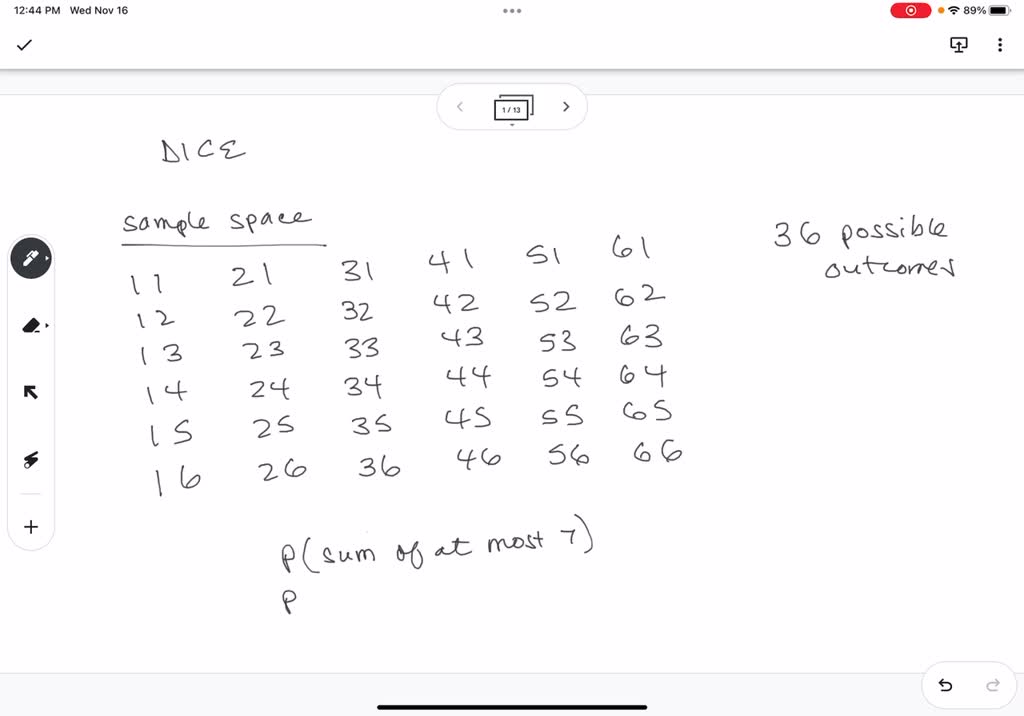 12:44 PM Wed Nov 16
89%
1 / 13
DICE
sample space
11 21 31 41 51 61
12 22 32 42 52 62
13 23 33 43 53 63
14 24 34 44 54 64
15 25 35 45 55 65
16 26 36 46 56 66
36 possible
outcomes
P(sum of at most 7)
P